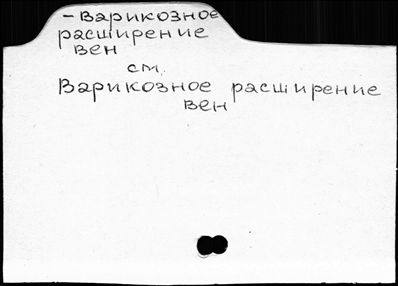 - Варикозное
расширение
вен
см.
Варикозное расширение
вен